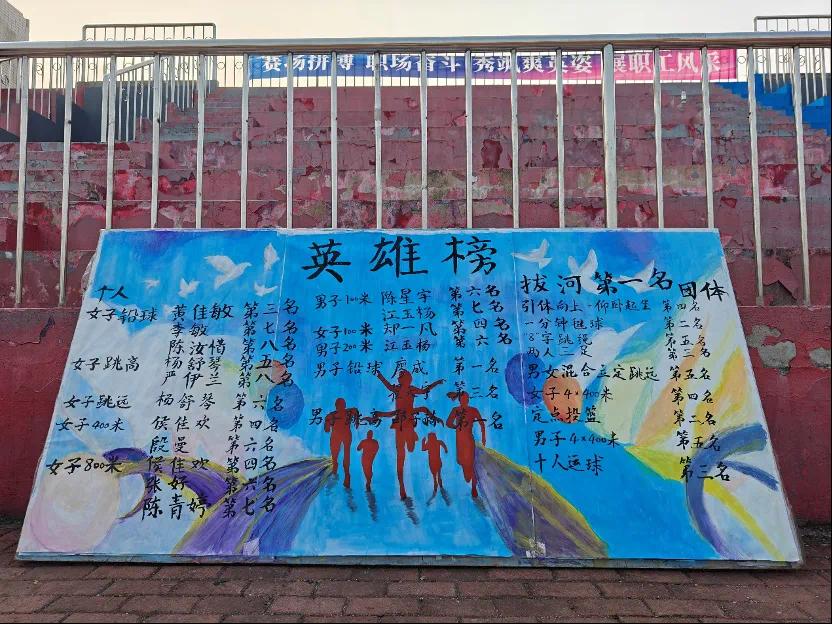 赛场拼搏 职场奋斗 秀飒爽英姿 展职工风采
英雄榜
个人
女子铅球 黄佳敏 第三名
李敏 第七名
陈汝惜 第八名
女子跳高 杨舒琴 第五名
严伊兰 第八名
女子跳远 杨舒琴 第六名
女子400米 侯佳欢 第四名
段曼 第六名
女子800米 侯佳欢 第四名
张好 第六名
陈青婷 第七名
男子100米 陈星宇 第六名
江玉杨 第七名
女子100米 邓一凡 第四名
男子200米 江玉杨 第六名
男子铅球 廖威 第一名
宇 第三名
男子跳高 邱子 第一名
拔河 第一名
团体
引体向上·仰卧起坐 第四名
一分钟毽球 第二名
"8"字跳绳 第五名
两人三足 第三名
男女混合立定跳远 第五名
女子4×400米 第四名
定点投篮 第二名
男子4×400米 第五名
十人运球 第三名